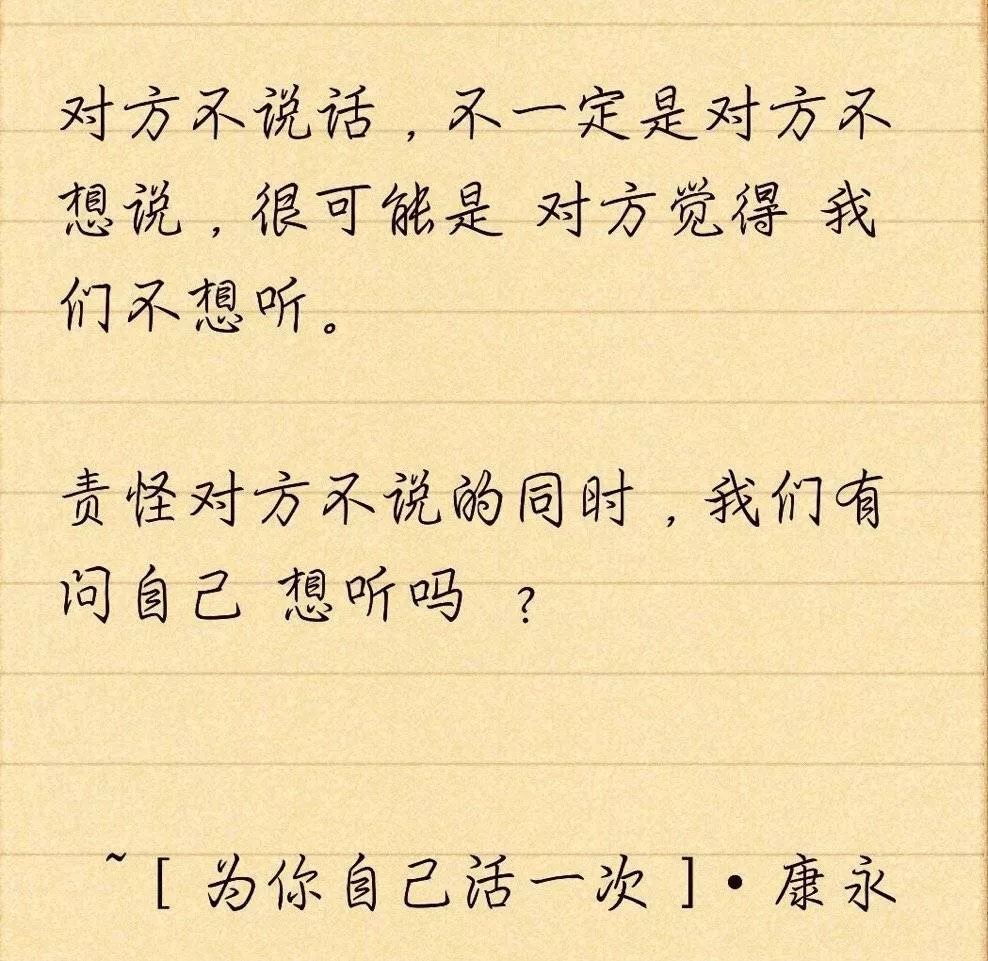 对方不说话，不一定是对方不
想说，很可能是 对方觉得 我
们不想听。
责怪对方不说的同时，我们有
问自己 想听吗 ？
~［为你自己活一次］·康永